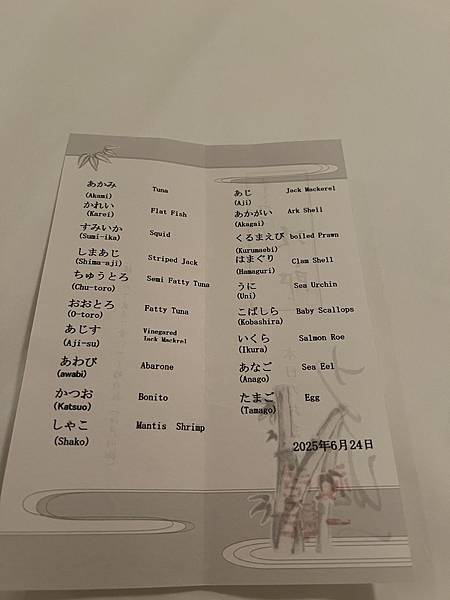 あかみ Tuna
(Akami)
かれい Flat Fish
(Karei)
すみいか Squid
(Sumi-ika)
しまあじ Striped Jack
(Shima-aji)
ちゅうとろ Semi Fatty Tuna
(Chu-toro)
おおとろ Fatty Tuna
(O-toro)
あじす Vinegared
Jack Mackrel
(Aji-su)
あわび Abarone
(awabi)
かつお Bonito
(Katsuo)
しゃこ Mantis Shrimp
(Shako)
あじ Jack Mackerel
(Aji)
あかがい Ark Shell
(Akagai)
くるまえび boiled Prawn
(Kurumaebi)
はまぐり Clam Shell
(Hamaguri)
うに Sea Urchin
(Uni)
こばしら Baby Scallops
(Kobashira)
いくら Salmon Roe
(Ikura)
あなご Sea Eel
(Anago)
たまご Egg
(Tamago)
2025年6月24日